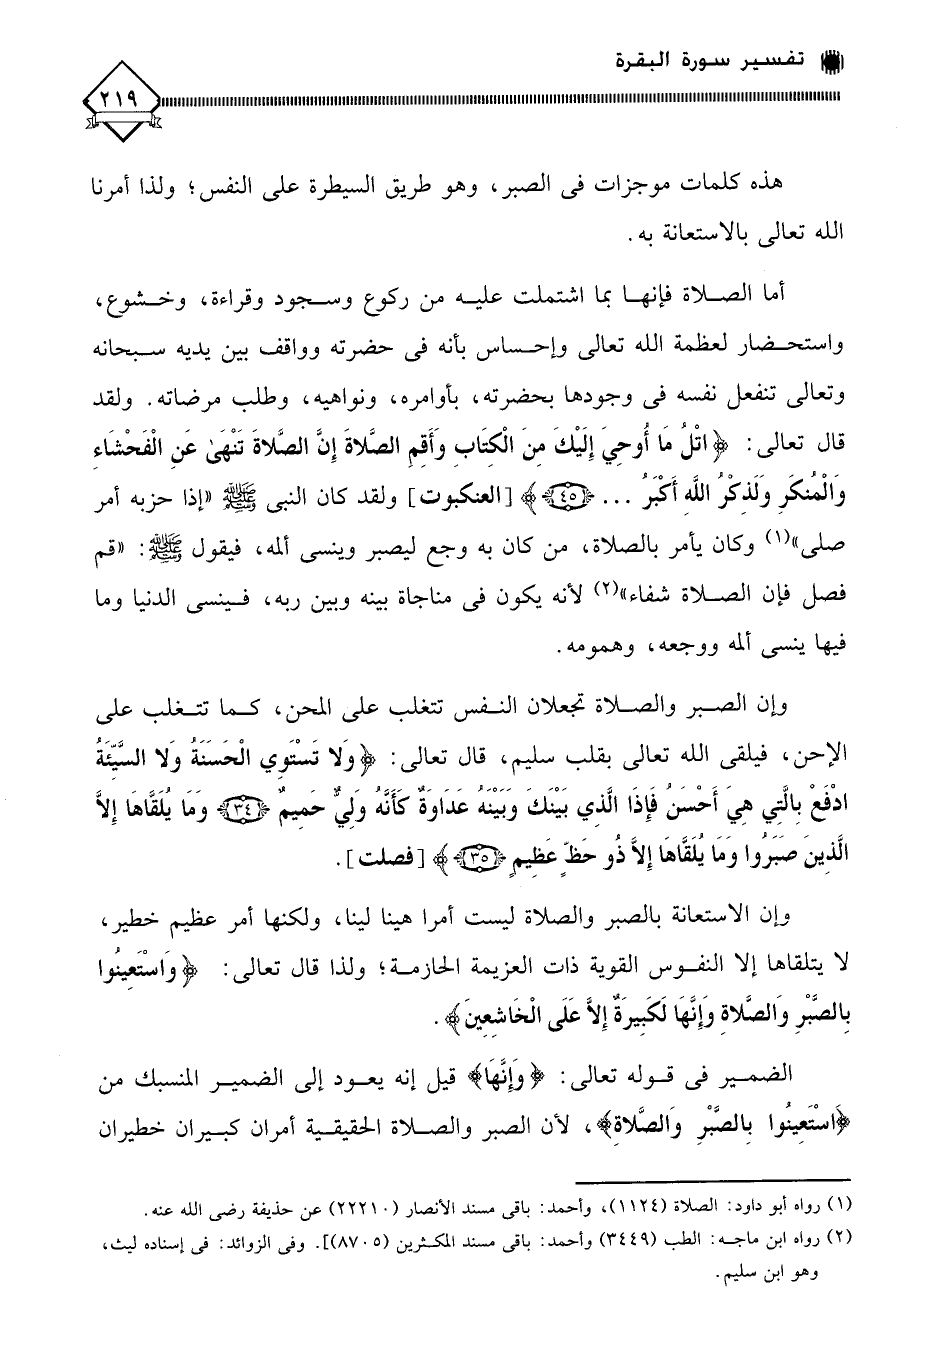 تفسير سورة البقرة
٢١٩
هذه كلمات موجزات فى الصبر، وهو طريق السيطرة على النفس؛ ولذا أمرنا
الله تعالى بالاستعانة به.
أما الصلاة فإنها بما اشتملت عليه من ركوع وسجود وقراءة، وخشوع،
واستحضار لعظمة الله تعالى وإحساس بأنه فى حضرته وواقف بين يديه سبحانه
وتعالى تنفعل نفسه فى وجودها بحضرته، بأوامره، ونواهيه، وطلب مرضاته. ولقد
قال تعالى: ﴿اتْلُ مَا أُوحِيَ إِلَيْكَ مِنَ الْكِتَابِ وَأَقِمِ الصَّلاةَ إِنَّ الصَّلاةَ تَنْهَىٰ عَنِ الْفَحْشَاءِ
وَالْمُنكَرِ وَلَذِكْرُ اللَّهِ أَكْبَرُ ... ﴿٤٥﴾﴾ [العنكبوت] ولقد كان النبى ﷺ «إذا حزبه أمر
صلى»(١) وكان يأمر بالصلاة، من كان به وجع ليصبر وينسى ألمه، فيقول ﷺ: «قم
فصل فإن الصلاة شفاء»(٢) لأنه يكون فى مناجاة بينه وبين ربه، فينسى الدنيا وما
فيها ينسى ألمه ووجعه، وهمومه.
وإن الصبر والصلاة تجعلان النفس تتغلب على المحن، كما تتغلب على
الإحن، فيلقى الله تعالى بقلب سليم، قال تعالى: ﴿وَلا تَسْتَوِي الْحَسَنَةُ وَلا السَّيِّئَةُ
ادْفَعْ بِالَّتِي هِيَ أَحْسَنُ فَإِذَا الَّذِي بَيْنَكَ وَبَيْنَهُ عَدَاوَةٌ كَأَنَّهُ وَلِيٌّ حَمِيمٌ ﴿٣٤﴾ وَمَا يُلَقَّاهَا إِلاَّ
الَّذِينَ صَبَرُوا وَمَا يُلَقَّاهَا إِلاَّ ذُو حَظٍّ عَظِيمٍ ﴿٣٥﴾﴾ [فصلت].
وإن الاستعانة بالصبر والصلاة ليست أمرا هينا لينا، ولكنها أمر عظيم خطير،
لا يتلقاها إلا النفوس القوية ذات العزيمة الحازمة؛ ولذا قال تعالى: ﴿وَاسْتَعِينُوا
بِالصَّبْرِ وَالصَّلاةِ وَإِنَّهَا لَكَبِيرَةٌ إِلاَّ عَلَى الْخَاشِعِينَ﴾.
الضمير فى قوله تعالى: ﴿وَإِنَّهَا﴾ قيل إنه يعود إلى الضمير المنسبك من
﴿اسْتَعِينُوا بِالصَّبْرِ وَالصَّلاةِ﴾، لأن الصبر والصلاة الحقيقية أمران كبيران خطيران
(١) رواه أبو داود: الصلاة (١١٢٤)، وأحمد: باقى مسند الأنصار (٢٢٢١٠) عن حذيفة رضى الله عنه.
(٢) رواه ابن ماجه: الطب (٣٤٤٩) وأحمد: باقى مسند المكثرين (٨٧٠٥)]. وفى الزوائد: فى إسناده ليث،
وهو ابن سليم.